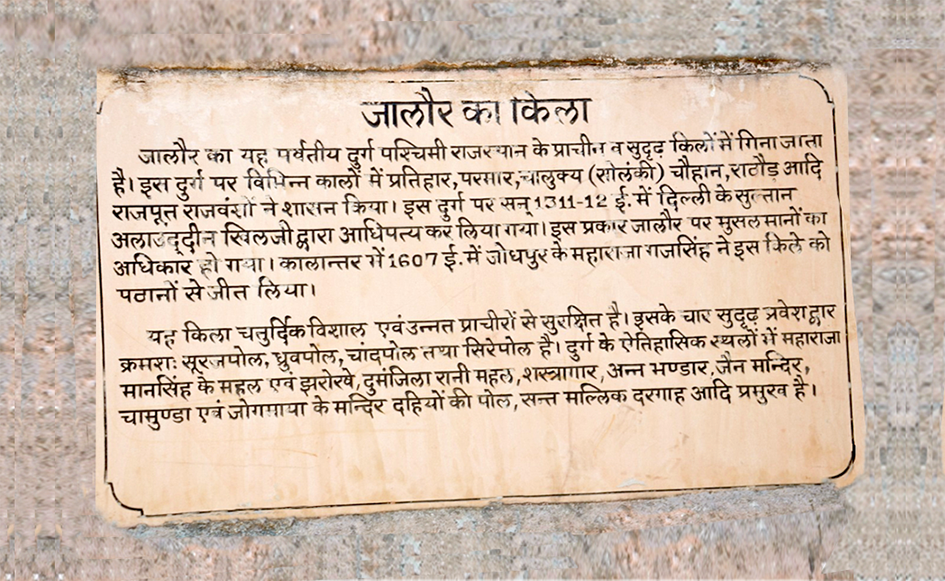 जालौर का किला
जालौर का यह पर्वतीय दुर्ग पश्चिमी राजस्थान के प्राचीन व सुदृढ़ किलों में गिना जाता
है। इस दुर्ग पर विभिन्न कालों में प्रतिहार, परमार, चालुक्य (सोलंकी) चौहान, राठौड़ आदि
राजपूत राजवंशों ने शासन किया। इस दुर्ग पर सन् 1311-12 ई. में दिल्ली के सुल्तान
अलाउद्दीन खिलजी द्वारा आधिपत्य कर लिया गया। इस प्रकार जालौर पर मुसलमानों का
अधिकार हो गया। कालान्तर में 1607 ई. में जोधपुर के महाराजा गजसिंह ने इस किले को
पठानों से जीत लिया।
यह किला चतुर्दिक विशाल एवं उन्नत प्राचीरों से सुरक्षित है। इसके चार सुदृढ़ प्रवेश द्वार
क्रमशः सूरजपोल, ध्रुवपोल, चांदपोल तथा सिरेपोल है। दुर्ग के ऐतिहासिक स्थलों में महाराजा
मानसिंह के महल एवं झरोखे, दुमंजिला रानी महल, शस्त्रागार, अन्न भण्डार, जैन मन्दिर,
चामुण्डा एवं जोगमाया के मन्दिर दहियों की पोल, सन्त मल्लिक दरगाह आदि प्रमुख है।